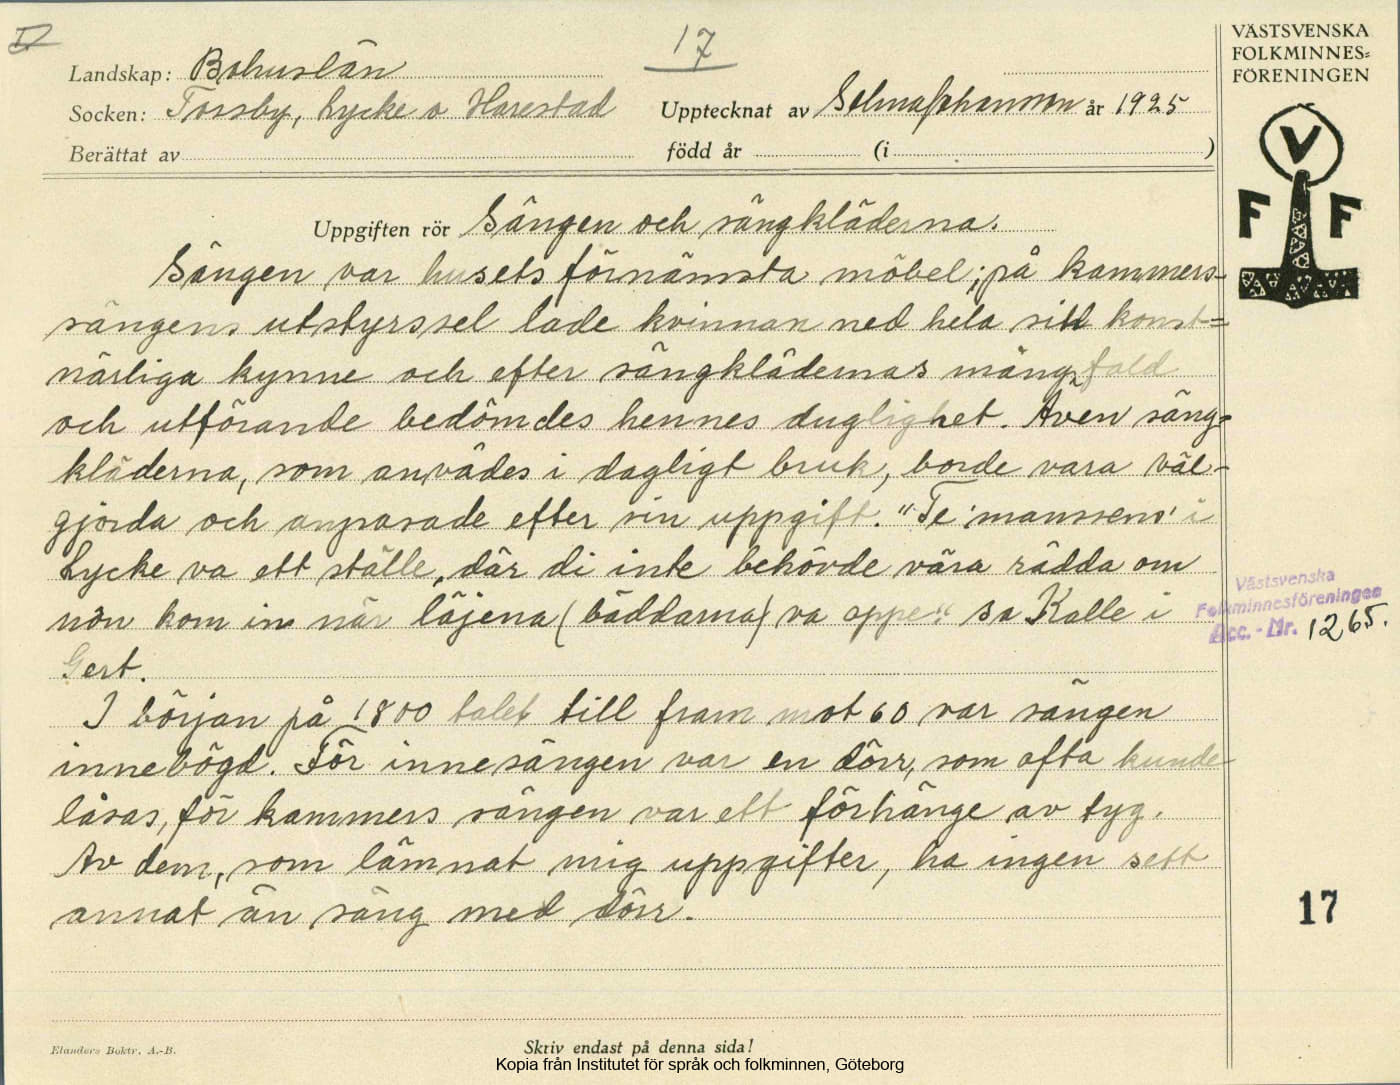 IV
17
VÄSTSVENSKA
FOLKMINNES=
FÖRENINGEN
Landskap: Bohuslän
Socken: Torsby, Lycke o Harestad Upptecknat av Selma Johansson år 1925
Berättat av född år (i )
V
F F
Uppgiften rör Sängen och sängkläderna.
Sängen var husets förnämsta möbel; på kammers-
sängens utstyrssel lade kvinnan ned hela sitt konst=
närliga kynne och efter sängklädernas mångfald
och utförande bedömdes hennes duglighet. Även säng=
kläderna, som anvädes i dagligt bruk, borde vara väl-
gjorda och anpasade efter sin uppgift. "Te 'manssens' i
Lycke va ett ställe, där di inte behövde våra rädda om
nön kom in när läjena (bäddarna) va oppe". sa Kalle i
Gert.
I början på 1800 talet till fram mot 60 var sängen
innebögd. För innesängen var en dörr, som ofta kunde
låsas, för kammers sängen var ett förhänge av tyg.
Av dem, som lämnat mig uppgifter, ha ingen sett
annat än säng med dörr.
Västsvenska
Folkminnesföreningen
Acc. - Nr. 1265.
17
Elanders Boktr. A.-B.
Skriv endast på denna sida!
Kopia från Institutet för språk och folkminnen, Göteborg